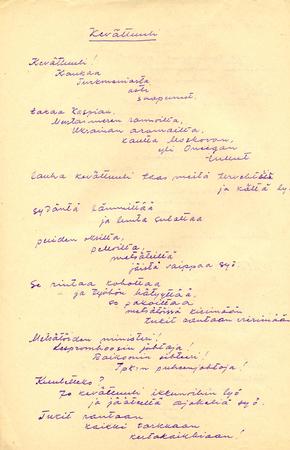 Kevättuuli
Kevättuuli!
Kaukaa
Turkmeniasta
asti
saapunut.
takaa Kaspian,
Mustanmeren rannoilta,
Ukrainan aromailta,
kautta Moskovan,
yli Onegan
tullut
Lauha kevättuuli taas meitä tervehtää
ja kättä
sydäntä lämmittää
ja lunta sulattaa
puiden oksilta,
pelloilta,
metsäteillä
jäistä vaippaa syö.
Se rintaa kohottaa
ja työhön
se pakoittaa
metsätöissä kiirimään
tukit rantaan vierimään
Metsätöiden ministeri!
Lespromhoosin johtaja!
Raikomin sihteeri!
Tpk:n puheenjohtaja!
Kuuletteko?
Jo kevättuuli ikkunoihin lyö
ja jääteitä ajokeliä syö.
Tukit rantaan
kaikki tarkkaan
kertakaikkiaan!